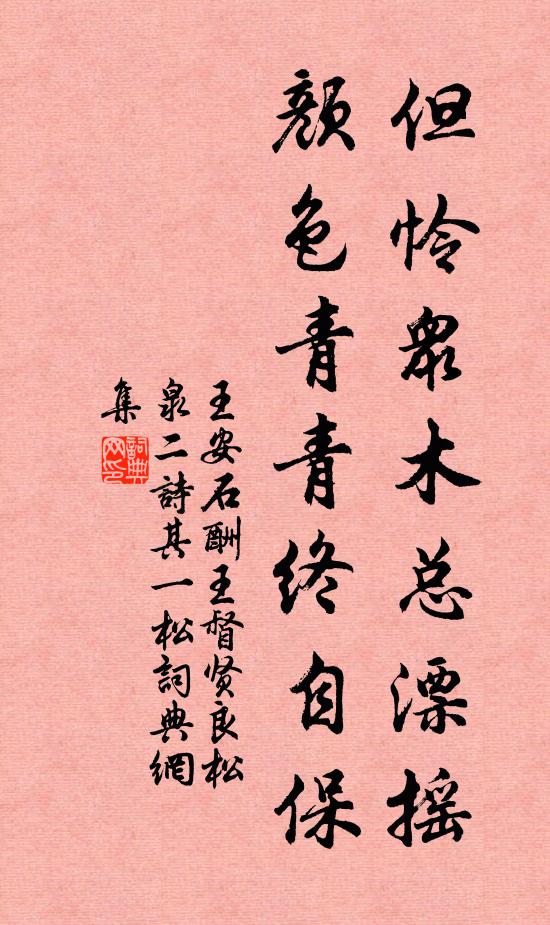 但怜众木总漂摇
颜色青青终自保
王安石酬王督贤良松
泉二詩其一松詞典網
集
詞典
网印